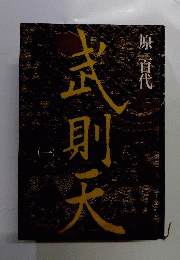 原 百代
武則天
(一)